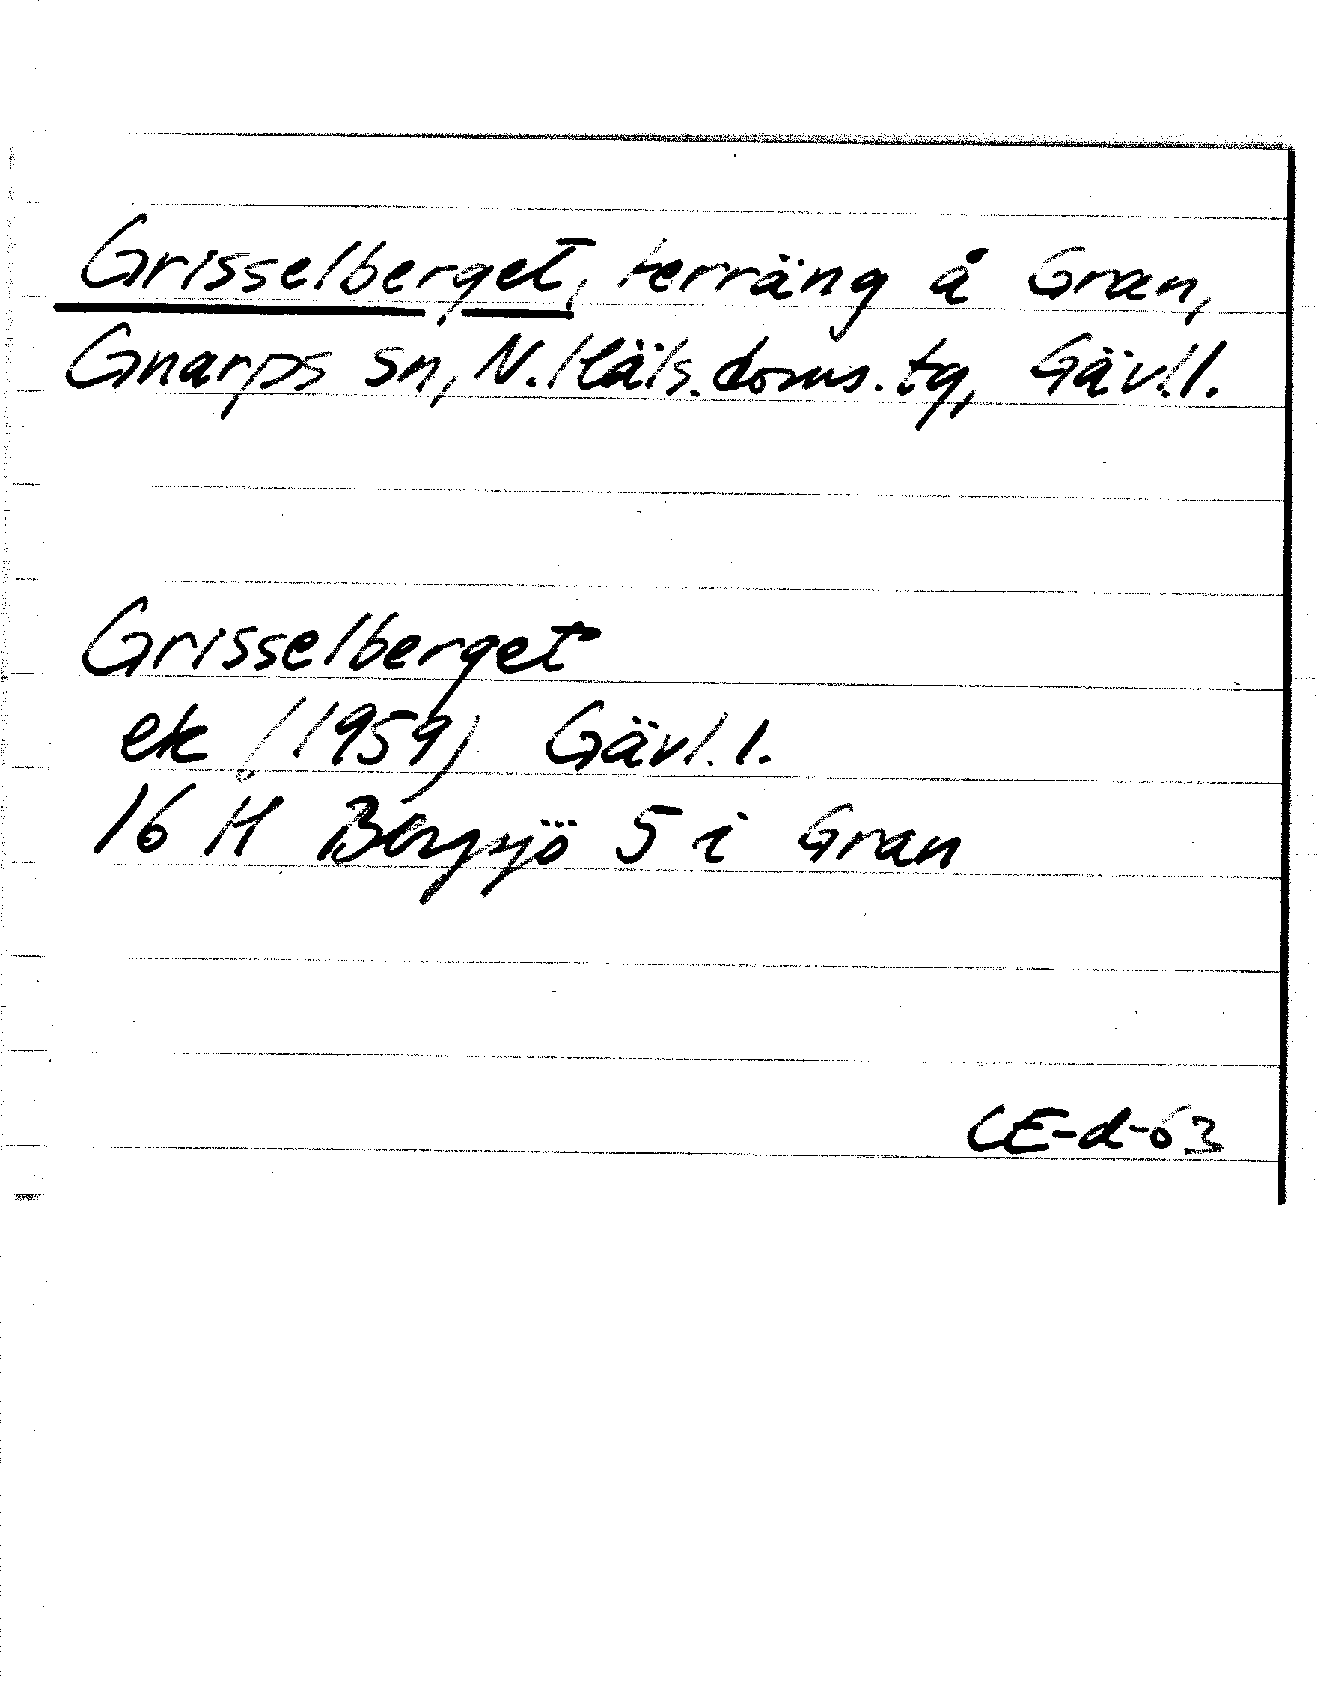 Grisselberget, terräng å Gran,
Gnarps sn, N. Häls. doms. tg, Gävl.l.
Grisselberget
ek (1959) Gävl. l.
16 H Bergsjö 5 i Gran
CE-d-63